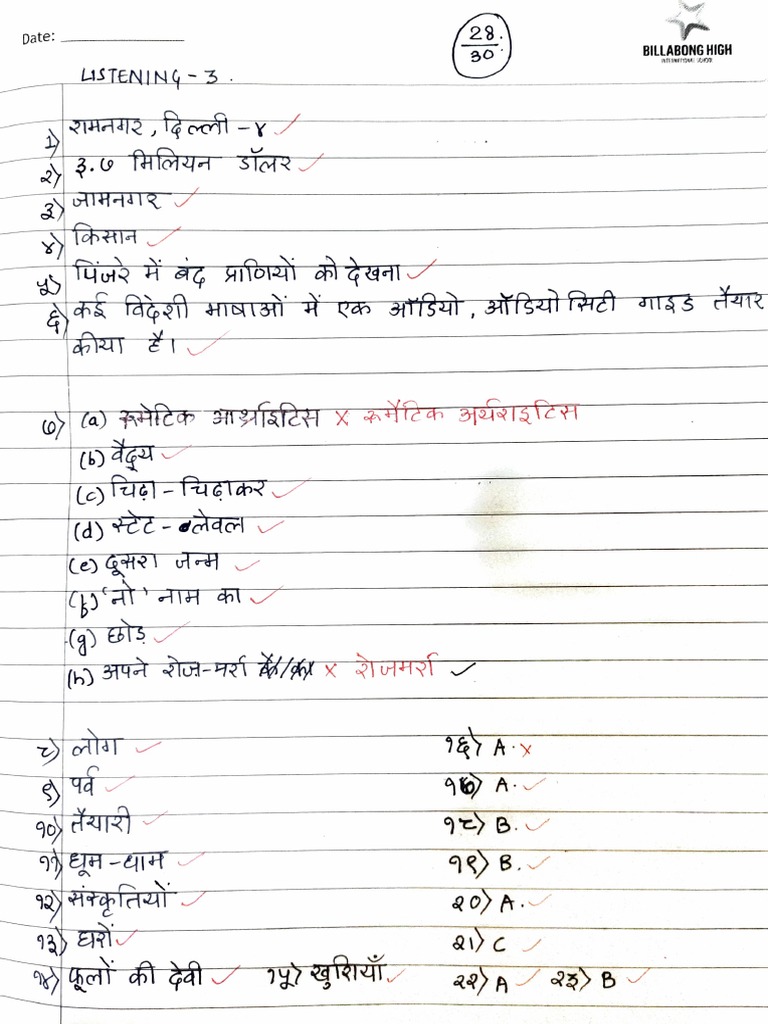 Date:
28
30
BILLABONG HIGH
INTERNATIONAL SCHOOL
LISTENING - 3.
1) रामनगर, दिल्ली - ४
२) ३.७ मिलियन डॉलर
३) जामनगर
४) किसान
५) पिंजरे में बंद प्राणियों को देखना
६) कई विदेशी भाषाओं में एक ऑडियो, ऑडियो सिटी गाइड तैयार
कीया है।
७) (a) रूमेटिक आर्थ्राइटिस x रूमैटिक अर्थराइटिस
(b) वैद्य
(c) चिढ़ा - चिढ़ाकर
(d) स्टेट - लेवल
(e) दूसरा जन्म
(f) 'नो' नाम का
(g) छोड़
(h) अपने रोज़-मर्रा x रोजमर्रा
८) लोग १६) A. x
९) पर्व १७) A.
१०) तैयारी १८) B.
११) धूम - धाम १९) B.
१२) संस्कृतियों २०) A.
१३) घरों २१) C
१४) फूलों की देवी १५) खुशियाँ २२) A २३) B